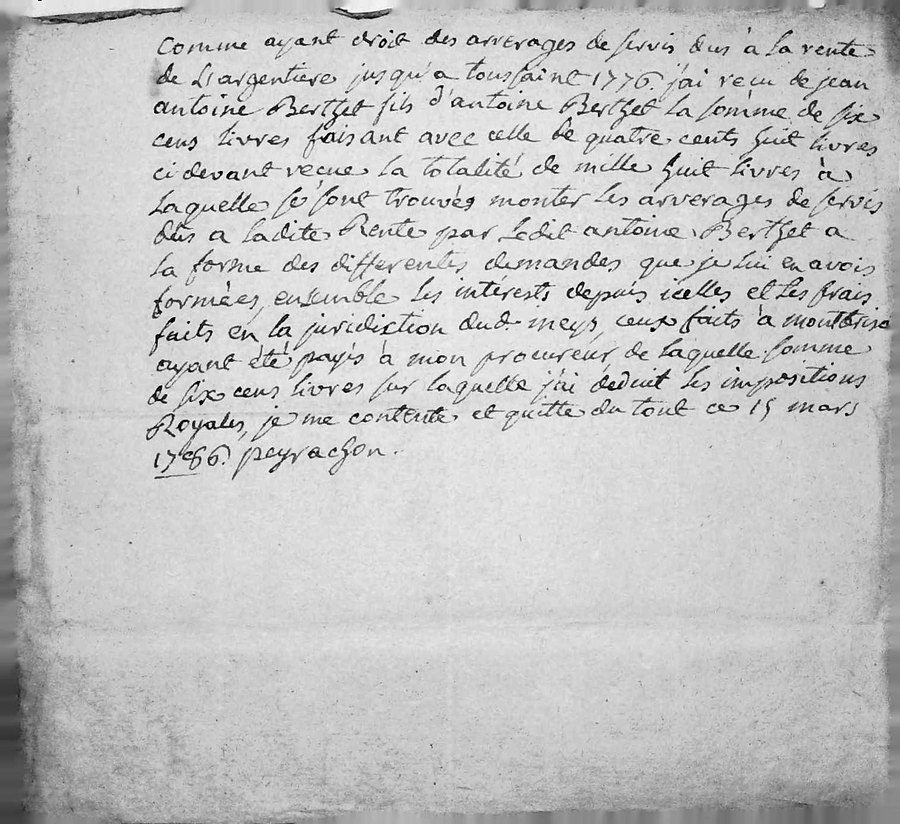 Comme ayant droit des arrerages de servis dus à la rente
de L'argentiere jusqu'a toussaint 1776. j'ai recu de jean
antoine Berthet fils d'antoine Berthet la somme de six
cens livres faisant avec celle de quatre cents huit livres
ci devant recue la totalité de mille huit livres à
Laquelle se sont trouvés monter les arrerages de servis
dus a ladite Rente par Ledit antoine Berthet a
la forme des differentes demandes que je lui en avois
formées, ensemble les interests depuis icelles et Les frais
faits en la juridiction dud meys, ceux faits à montbrison
ayant été payés à mon procureur, de laquelle somme
de six cens livres sur laquelle j'ai deduit les impositions
Royales, je me contente et quitte du tout ce 15 mars
1786. peyrachon.